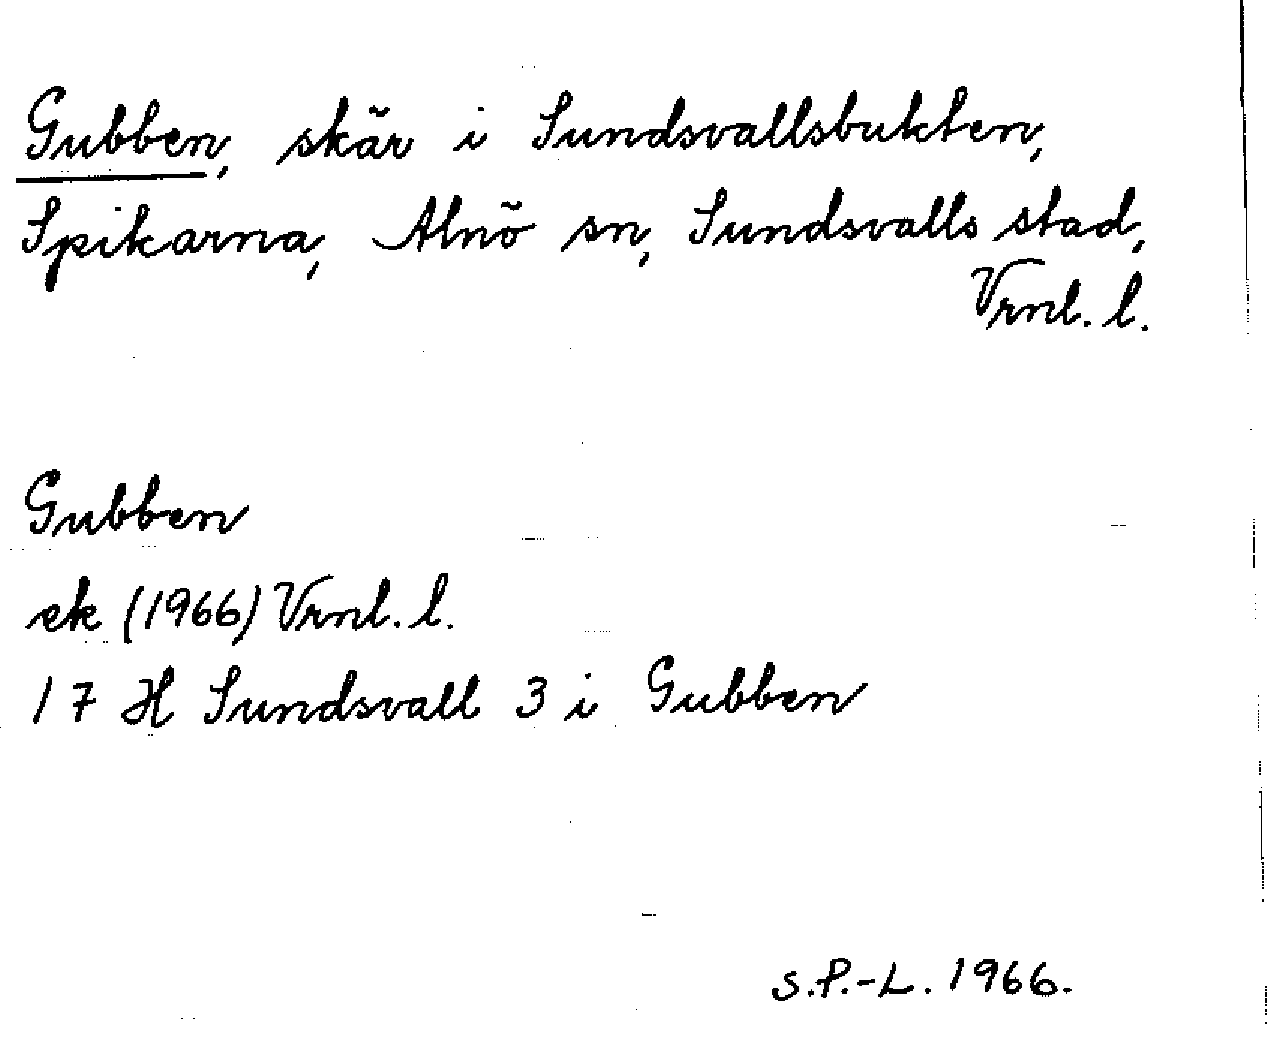 Gubben, skär i Sundsvallsbukten,
Spikarna, Alnö sn, Sundsvalls stad,
Vrnl. l.
Gubben
ek (1966) Vrnl. l.
17 H Sundsvall 3 i Gubben
S.P.-L. 1966.